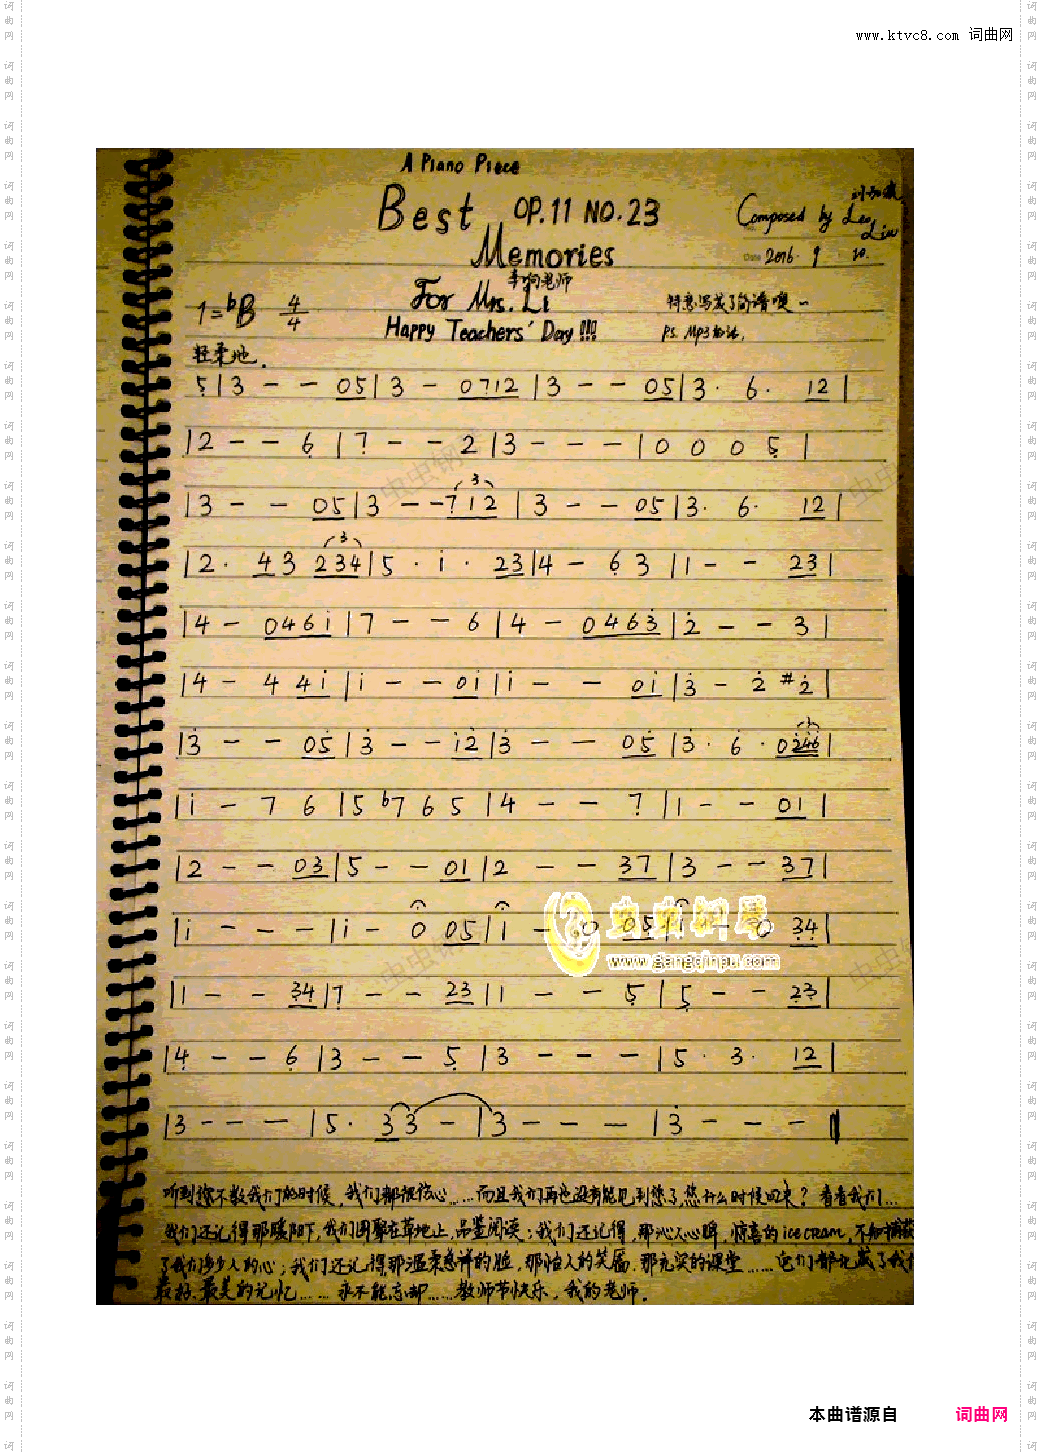 www.ktvc8.com 词曲网
A Piano Piece
Best OP.11 NO.23
Memories
Composed by Leo Liu
Date 2016. 9 10.
李 老师
For Mrs. Li
Happy Teachers' Day!!!
特意写成了简谱噢~
P.S. Mp3
1=♭B 4/4
轻柔地.
5|3 - - 05|3 - 0712|3 - - 05|3· 6· 12|
|2 - - 6|7 - - 2|3 - - -|0 0 0 5|
|3 - - 05|3 - - 712|3 - - 05|3· 6· 12|
|2· 43 234|5· i· 23|4 - 6 3|1 - - 23|
|4 - 046i|7 - - 6|4 - 0463|2 - - 3|
|4 - 4 4i|i - - 0i|i - - 0i|3 - 2 #2|
|3 - - 05|3 - - i2|3 - - 05|3· 6· 0246|
|i - 7 6|5 ♭7 6 5|4 - - 7|1 - - 01|
|2 - - 03|5 - - 01|2 - - 37|3 - - 37|
|i - - -|i - 0 05|i - 0 05|i - 0 34|
|1 - - 34|7 - - 23|1 - - 5|5 - - 23|
|4 - - 6|3 - - 5|3 - - -|5· 3· 12|
|3 - - -|5· 33 -|3 - - -|3 - - -‖
虫虫钢琴
www.gangqinpu.com
听到您不教我们的时候,我们都很伤心……而且我们再也没有能见到您了,您什么时候回来?看看我们…
我们还记得那暖阳下,我们围聚在草地上,品鉴阅读;我们还记得,那沁人心脾,惊喜的ice cream,不知捕获
了我们多少人的心;我们还记得那温柔慈祥的脸,那怡人的笑靥,那充实的课堂……它们都化成了我们
最好、最美的记忆……永不能忘却……教师节快乐,我的老师。
本曲谱源自 词曲网